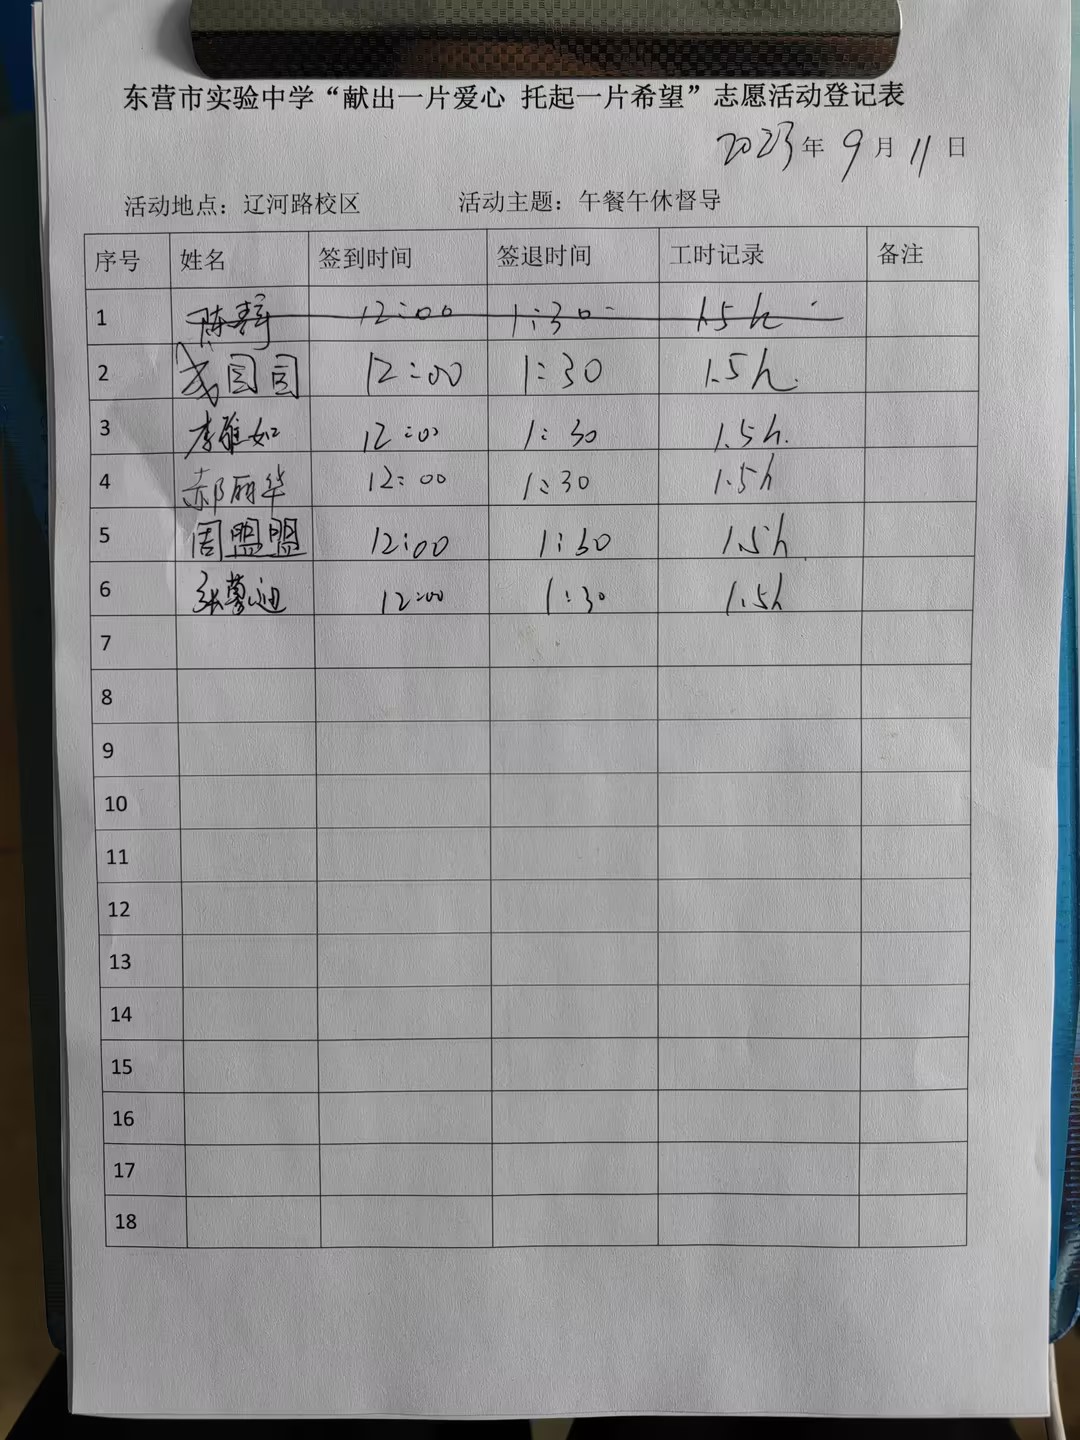 东营市实验中学“献出一片爱心 托起一片希望”志愿活动登记表
2023年9月11日
活动地点：辽河路校区 活动主题：午餐午休督导
序号 姓名 签到时间 签退时间 工时记录 备注
1 陈 12:00 1:30 1.5h
2 12:00 1:30 1.5h.
3 李雅如 12:00 1:30 1.5h.
4 郝丽华 12:00 1:30 1.5h
5 周盟盟 12:00 1:30 1.5h
6 张 迪 12:00 1:30 1.5h
7
8
9
10
11
12
13
14
15
16
17
18